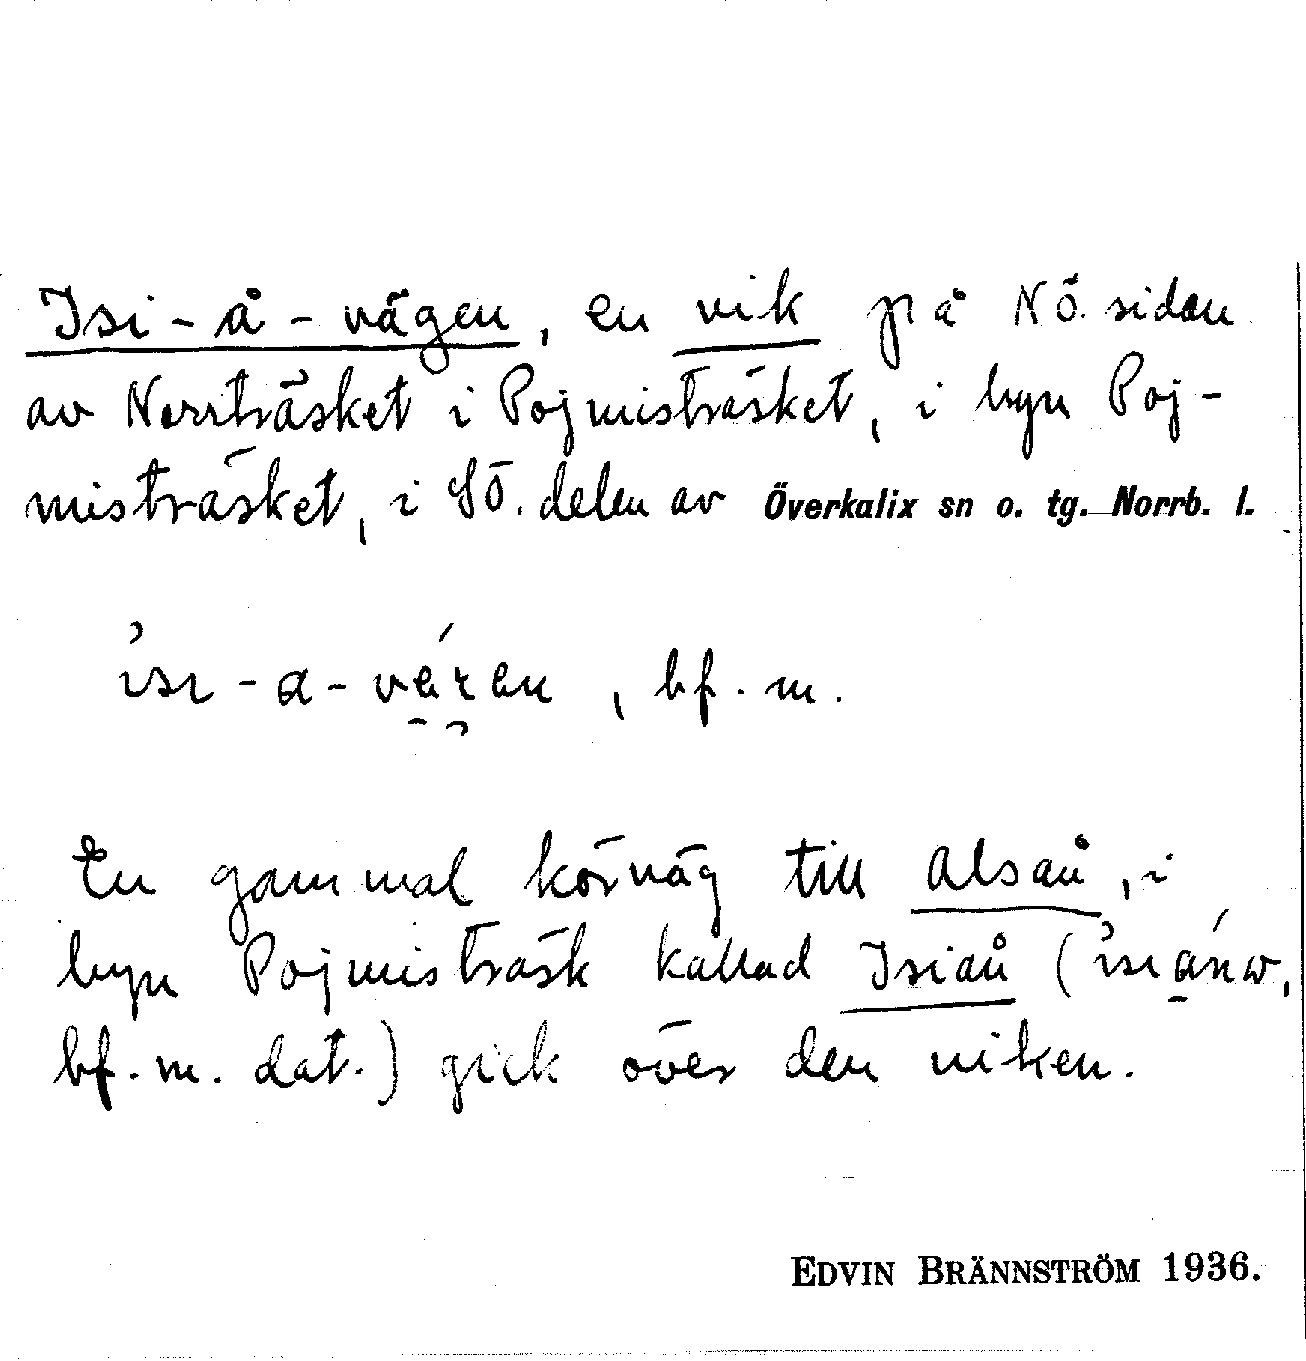 Isi-å-vägen, en vik på NÖ. sidan
av Norrträsket i Pojmisträsket, i byn Poj-
misträsket, i SÖ. delen av Överkalix sn o. tg. Norrb. l.
bf. m.
En gammal körväg till Alsån, i
byn Pojmisträsk kallad Isiån (
bf. m. dat.) gick över den viken.
EDVIN BRÄNNSTRÖM 1936.